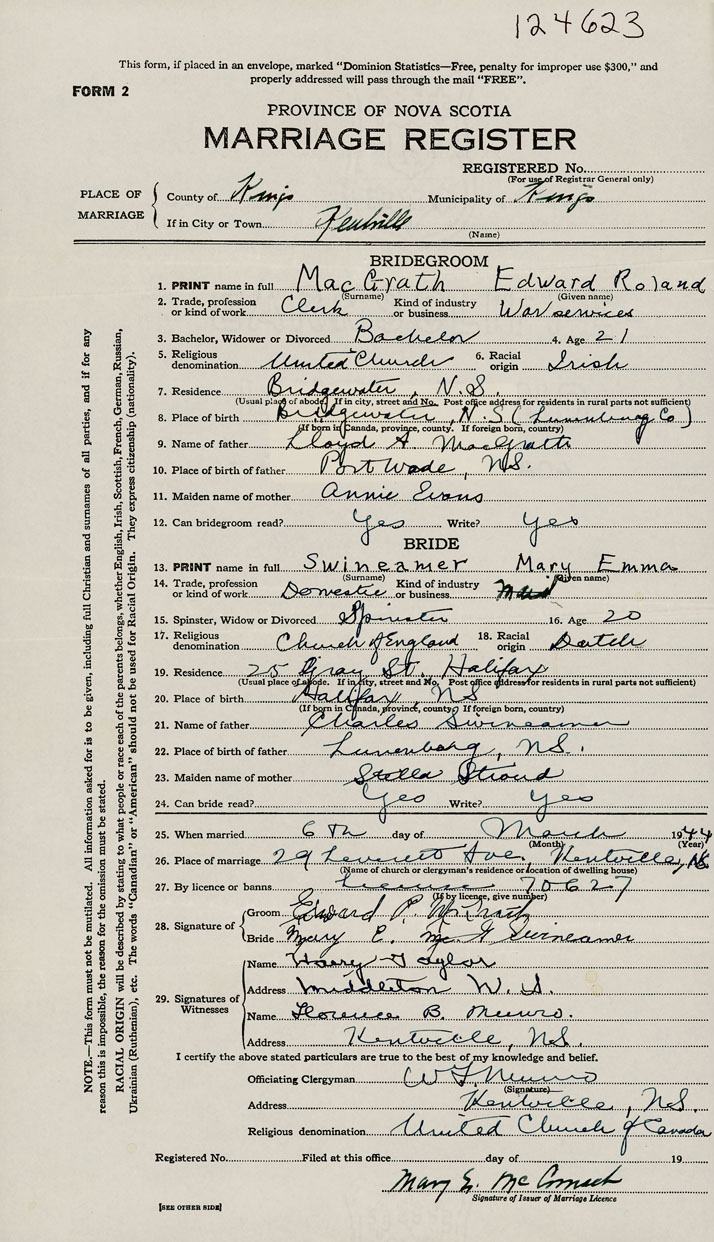 124623
This form, if placed in an envelope, marked "Dominion Statistics—Free, penalty for improper use $300," and
properly addressed will pass through the mail "FREE".
FORM 2
PROVINCE OF NOVA SCOTIA
MARRIAGE REGISTER
REGISTERED No.
(For use of Registrar General only)
PLACE OF MARRIAGE
County of Kings Municipality of Kings
If in City or Town Kentville
(Name)
BRIDEGROOM
1. PRINT name in full MacGrath Edward Roland
(Surname) (Given name)
2. Trade, profession or kind of work Clerk Kind of industry or business War services
3. Bachelor, Widower or Divorced Bachelor 4. Age 21
5. Religious denomination United Church 6. Racial origin Irish
7. Residence Bridgewater, N.S.
(Usual place of abode. If in city, street and No. Post office address for residents in rural parts not sufficient)
8. Place of birth Bridgewater, N.S. (Lunenburg Co)
(If born in Canada, province, county. If foreign born, country)
9. Name of father Lloyd A. MacGrath
10. Place of birth of father Port Wade, N.S.
11. Maiden name of mother Annie Evans
12. Can bridegroom read? Yes Write? Yes
BRIDE
13. PRINT name in full Swineamer Mary Emma
(Surname) (Given name)
14. Trade, profession or kind of work Domestic Kind of industry or business
15. Spinster, Widow or Divorced Spinster 16. Age 20
17. Religious denomination Church of England 18. Racial origin Dutch
19. Residence 25 Gray St. Halifax
(Usual place of abode. If in city, street and No. Post office address for residents in rural parts not sufficient)
20. Place of birth Halifax, NS
(If born in Canada, province, county. If foreign born, country)
21. Name of father Charles Swineamer
22. Place of birth of father Lunenburg, N.S.
23. Maiden name of mother Stella Stroud
24. Can bride read? Yes Write? Yes
25. When married 6th day of March 1944
(Month) (Year)
26. Place of marriage 29 Leverett Ave, Kentville, NS
(Name of church or clergyman's residence or location of dwelling house)
27. By licence or banns Licence 70627
(If by license, give number)
28. Signature of
Groom Edward R. McGrath
Bride Mary E. Swineamer
29. Signatures of Witnesses
Name Harry Taylor
Address Middleton N.S.
Name Florence B. Munro.
Address Kentville, N.S.
I certify the above stated particulars are true to the best of my knowledge and belief.
Officiating Clergyman Munro
(Signature)
Address Kentville, N.S.
Religious denomination United Church of Canada
Registered No. Filed at this office day of 19
Mary E. McCormack
Signature of Issuer of Marriage Licence
[SEE OTHER SIDE]
NOTE.—This form must not be mutilated. All information asked for is to be given, including full Christian and surnames of all parties, and if for any
reason this is impossible, the reason for the omission must be stated.
RACIAL ORIGIN will be described by stating to what people or race each of the parents belongs, whether English, Irish, Scottish, French, German, Russian,
Ukrainian (Ruthenian), etc. The words "Canadian" or "American" should not be used for Racial Origin. They express citizenship (nationality).